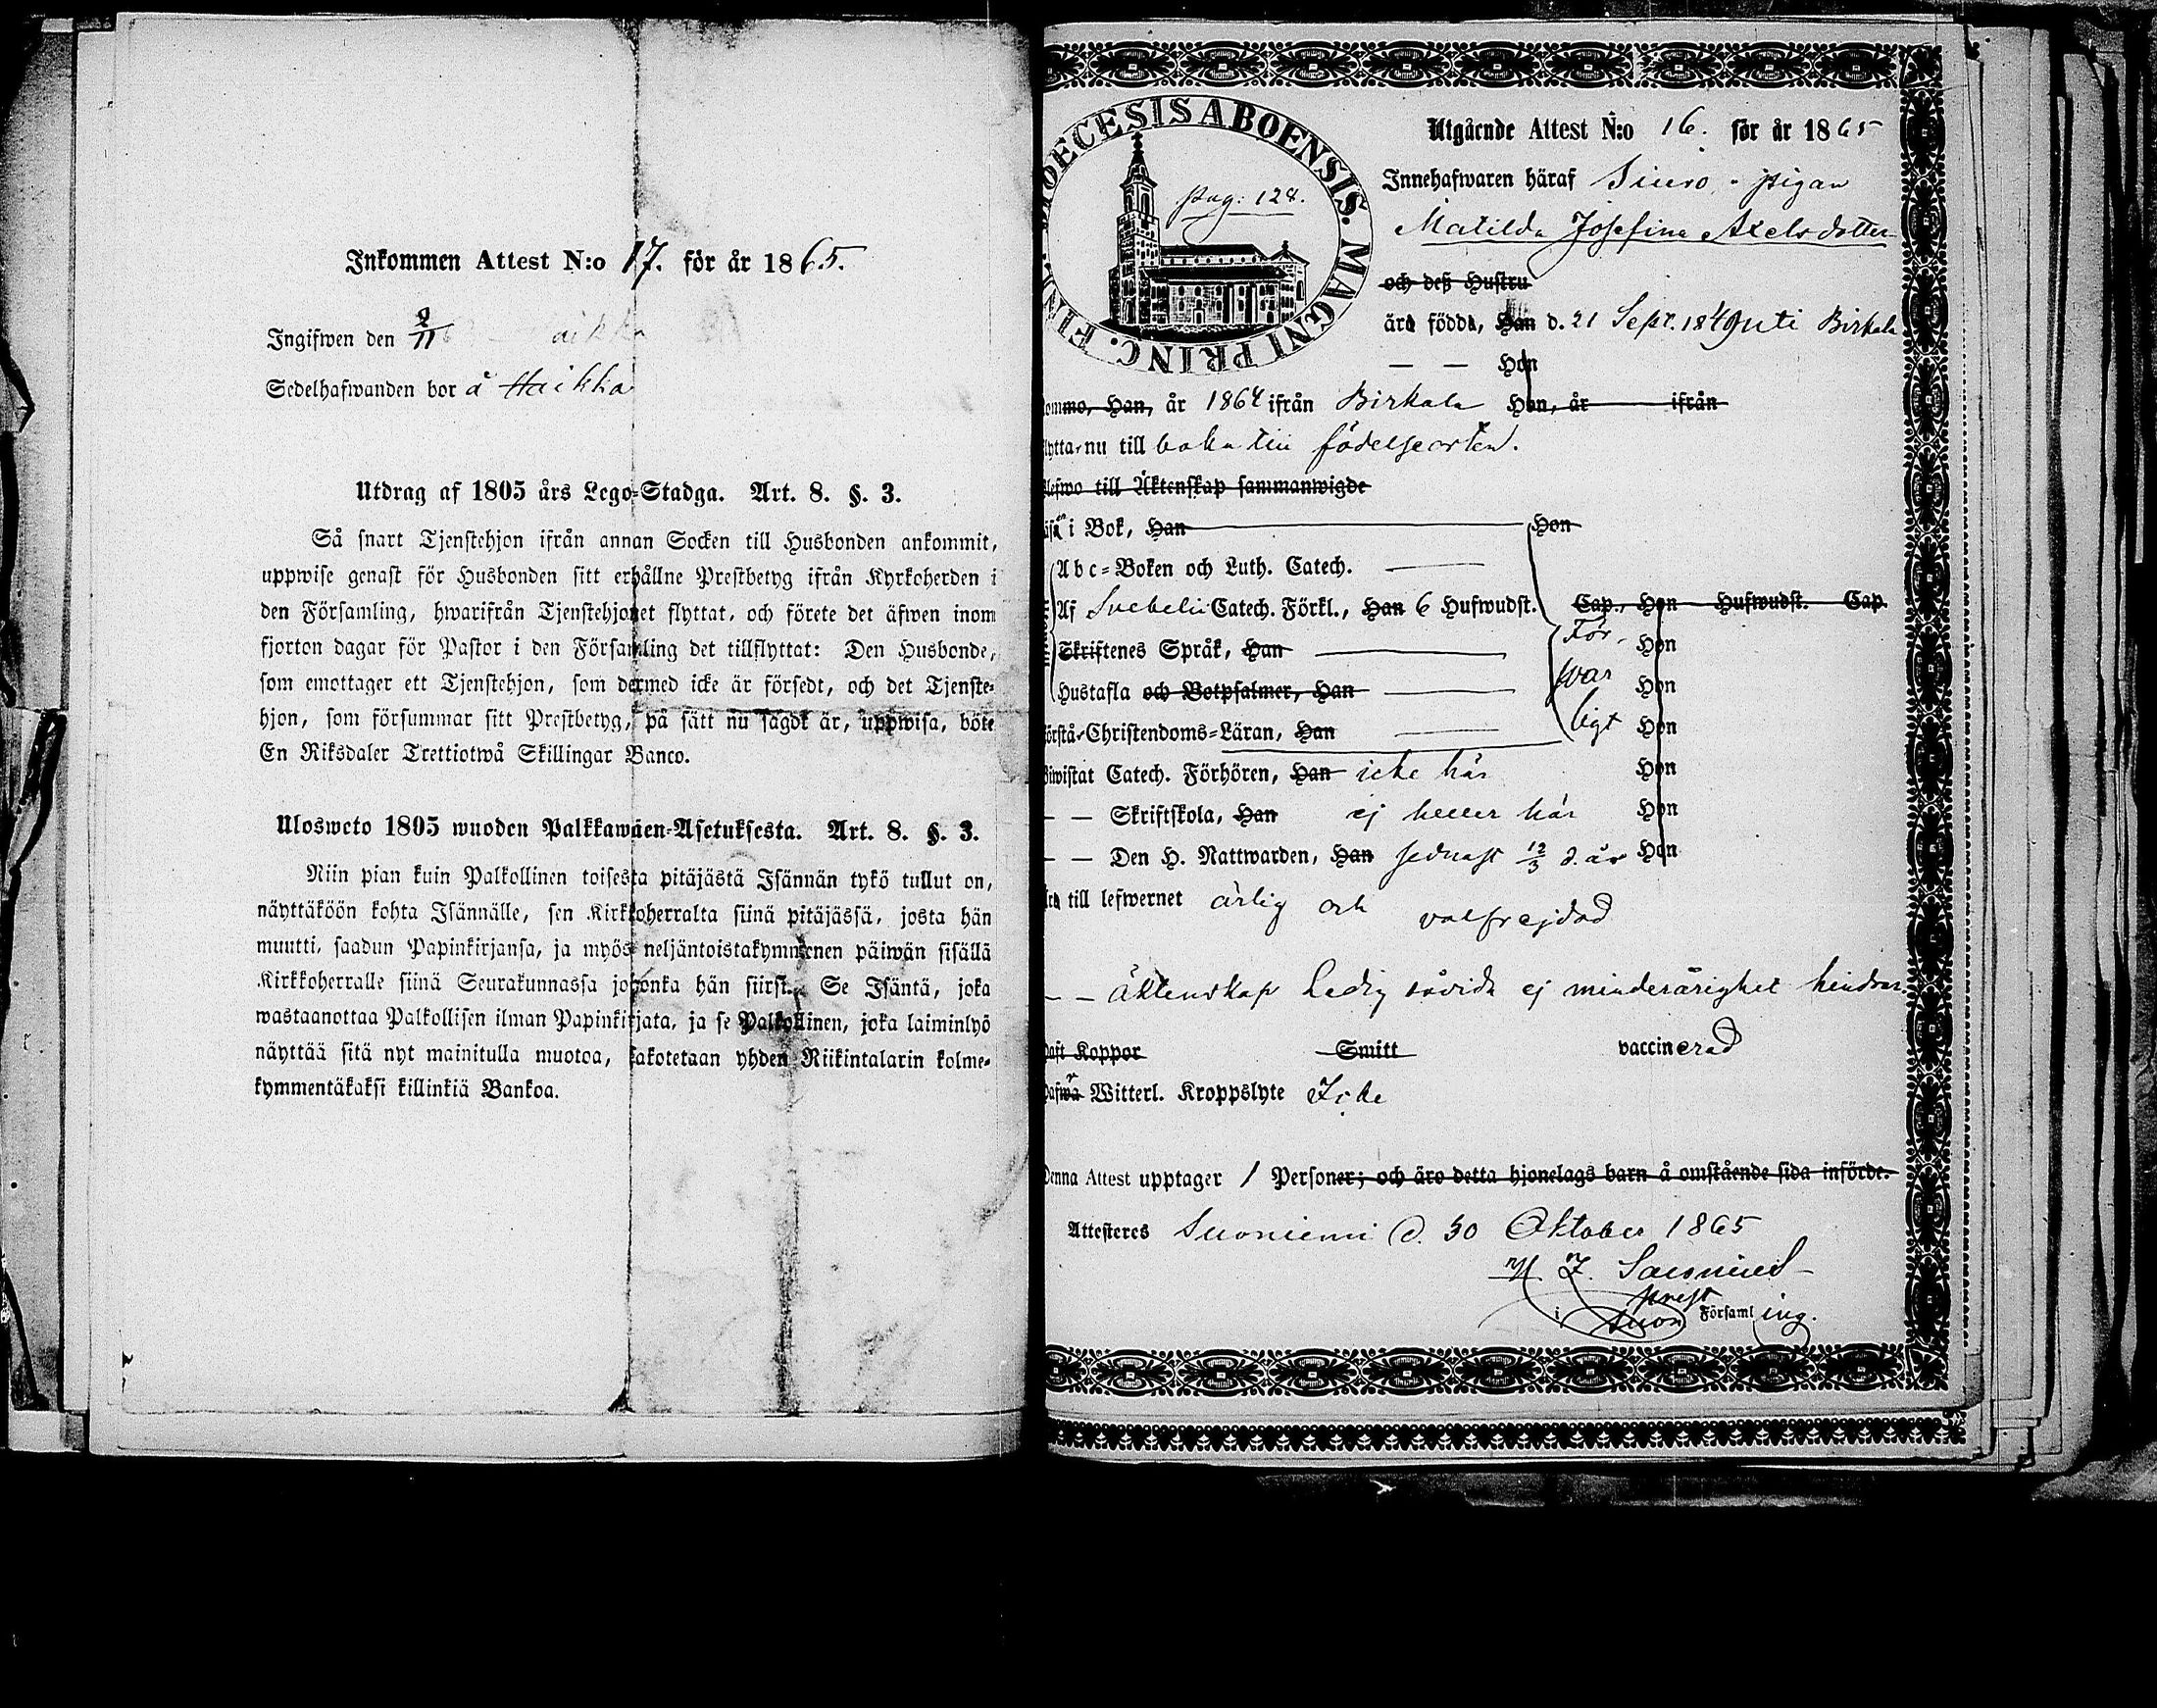 Inkommen Attest N:o 17. för år 1865.
Ingifwen den 2/11
Sedelhafwanden bor å Haikka
Utdrag af 1805 års Lego-Stadga. Art. 8. §. 3.
Så snart Tjenstehjon ifrån annan Socken till Husbonden ankommit,
uppwise genast för Husbonden sitt erhållne Prestbetyg ifrån Kyrkoherden i
den Församling, hwarifrån Tjenstehjonet flyttat, och förete det äfwen inom
fjorton dagar för Pastor i den Församling det tillflyttat: Den Husbonde,
som emottager ett Tjenstehjon, som dermed icke är försedt, och det Tjenste-
hjon, som försummar sitt Prestbetyg, på sätt nu sagdt är, uppwisa, böte
En Riksdaler Trettiotwå Skillingar Banco.
Ulosweto 1805 wuoden Palkkawäen-Asetuksesta. Art. 8. §. 3.
Niin pian kuin Palkollinen toisesta pitäjästä Isännän tykö tullut on,
näyttäköön kohta Isännälle, sen Kirkkoherralta siinä pitäjässä, josta hän
muutti, saadun Papinkirjansa, ja myös neljäntoistakymmenen päiwän sisällä
Kirkkoherralle siinä Seurakunnassa johonka hän siirst. Se Isäntä, joka
wastaanottaa Palkollisen ilman Papinkirjata, ja se Palkollinen, joka laiminlyö
näyttää sitä nyt mainitulla muotoa, sakotetaan yhden Riikintalarin kolme-
kymmentäkaksi killinkiä Bankoa.
DIOECESIS ABOENSIS. MAGNI PRINC. FINL.
pag: 128.
Utgående Attest N:o 16. för år 1865
Innehafwaren häraf pigan
Matilda Josefina Axelsdotter
och deß Hustru
äro födda, Han d. 21 Sept. 1849 uti Birkala
— — Hon
kommo, Han, år 1864 ifrån Birkala Hon, år ifrån
flytta nu till baka till födelseorten.
blefwo till Äktenskap sammanwigde
i Bok, Han Hon
Abc-Boken och Luth. Catech.
Af Svebelii Catech. Förkl., Han 6 Hufwudst. Cap., Hon Hufwudst. Cap.
Skriftenes Språk, Han För Hon
Hustafla och Botpsalmer, Han svar Hon
förstå Christendoms-Läran, Han ligt Hon
Biwistat Catech. Förhören, Han icke här Hon
— — Skriftskola, Han ej heller här Hon
— — Den H. Nattwarden, Han sednast 12/3 d. år Hon
till lefwernet ärlig och välfrejdad
— — äktenskap Ledig såvida ej minderårighet hindrar.
haft Koppor Smitt vaccinerad
hafwa Witterl. Kroppslyte Icke
Denna Attest upptager 1 Personer; och äro detta hjonelags barn å omstående sida införde.
Attesteres Suoniemi d. 30 Oktober 1865
prest
i Suon Församling.